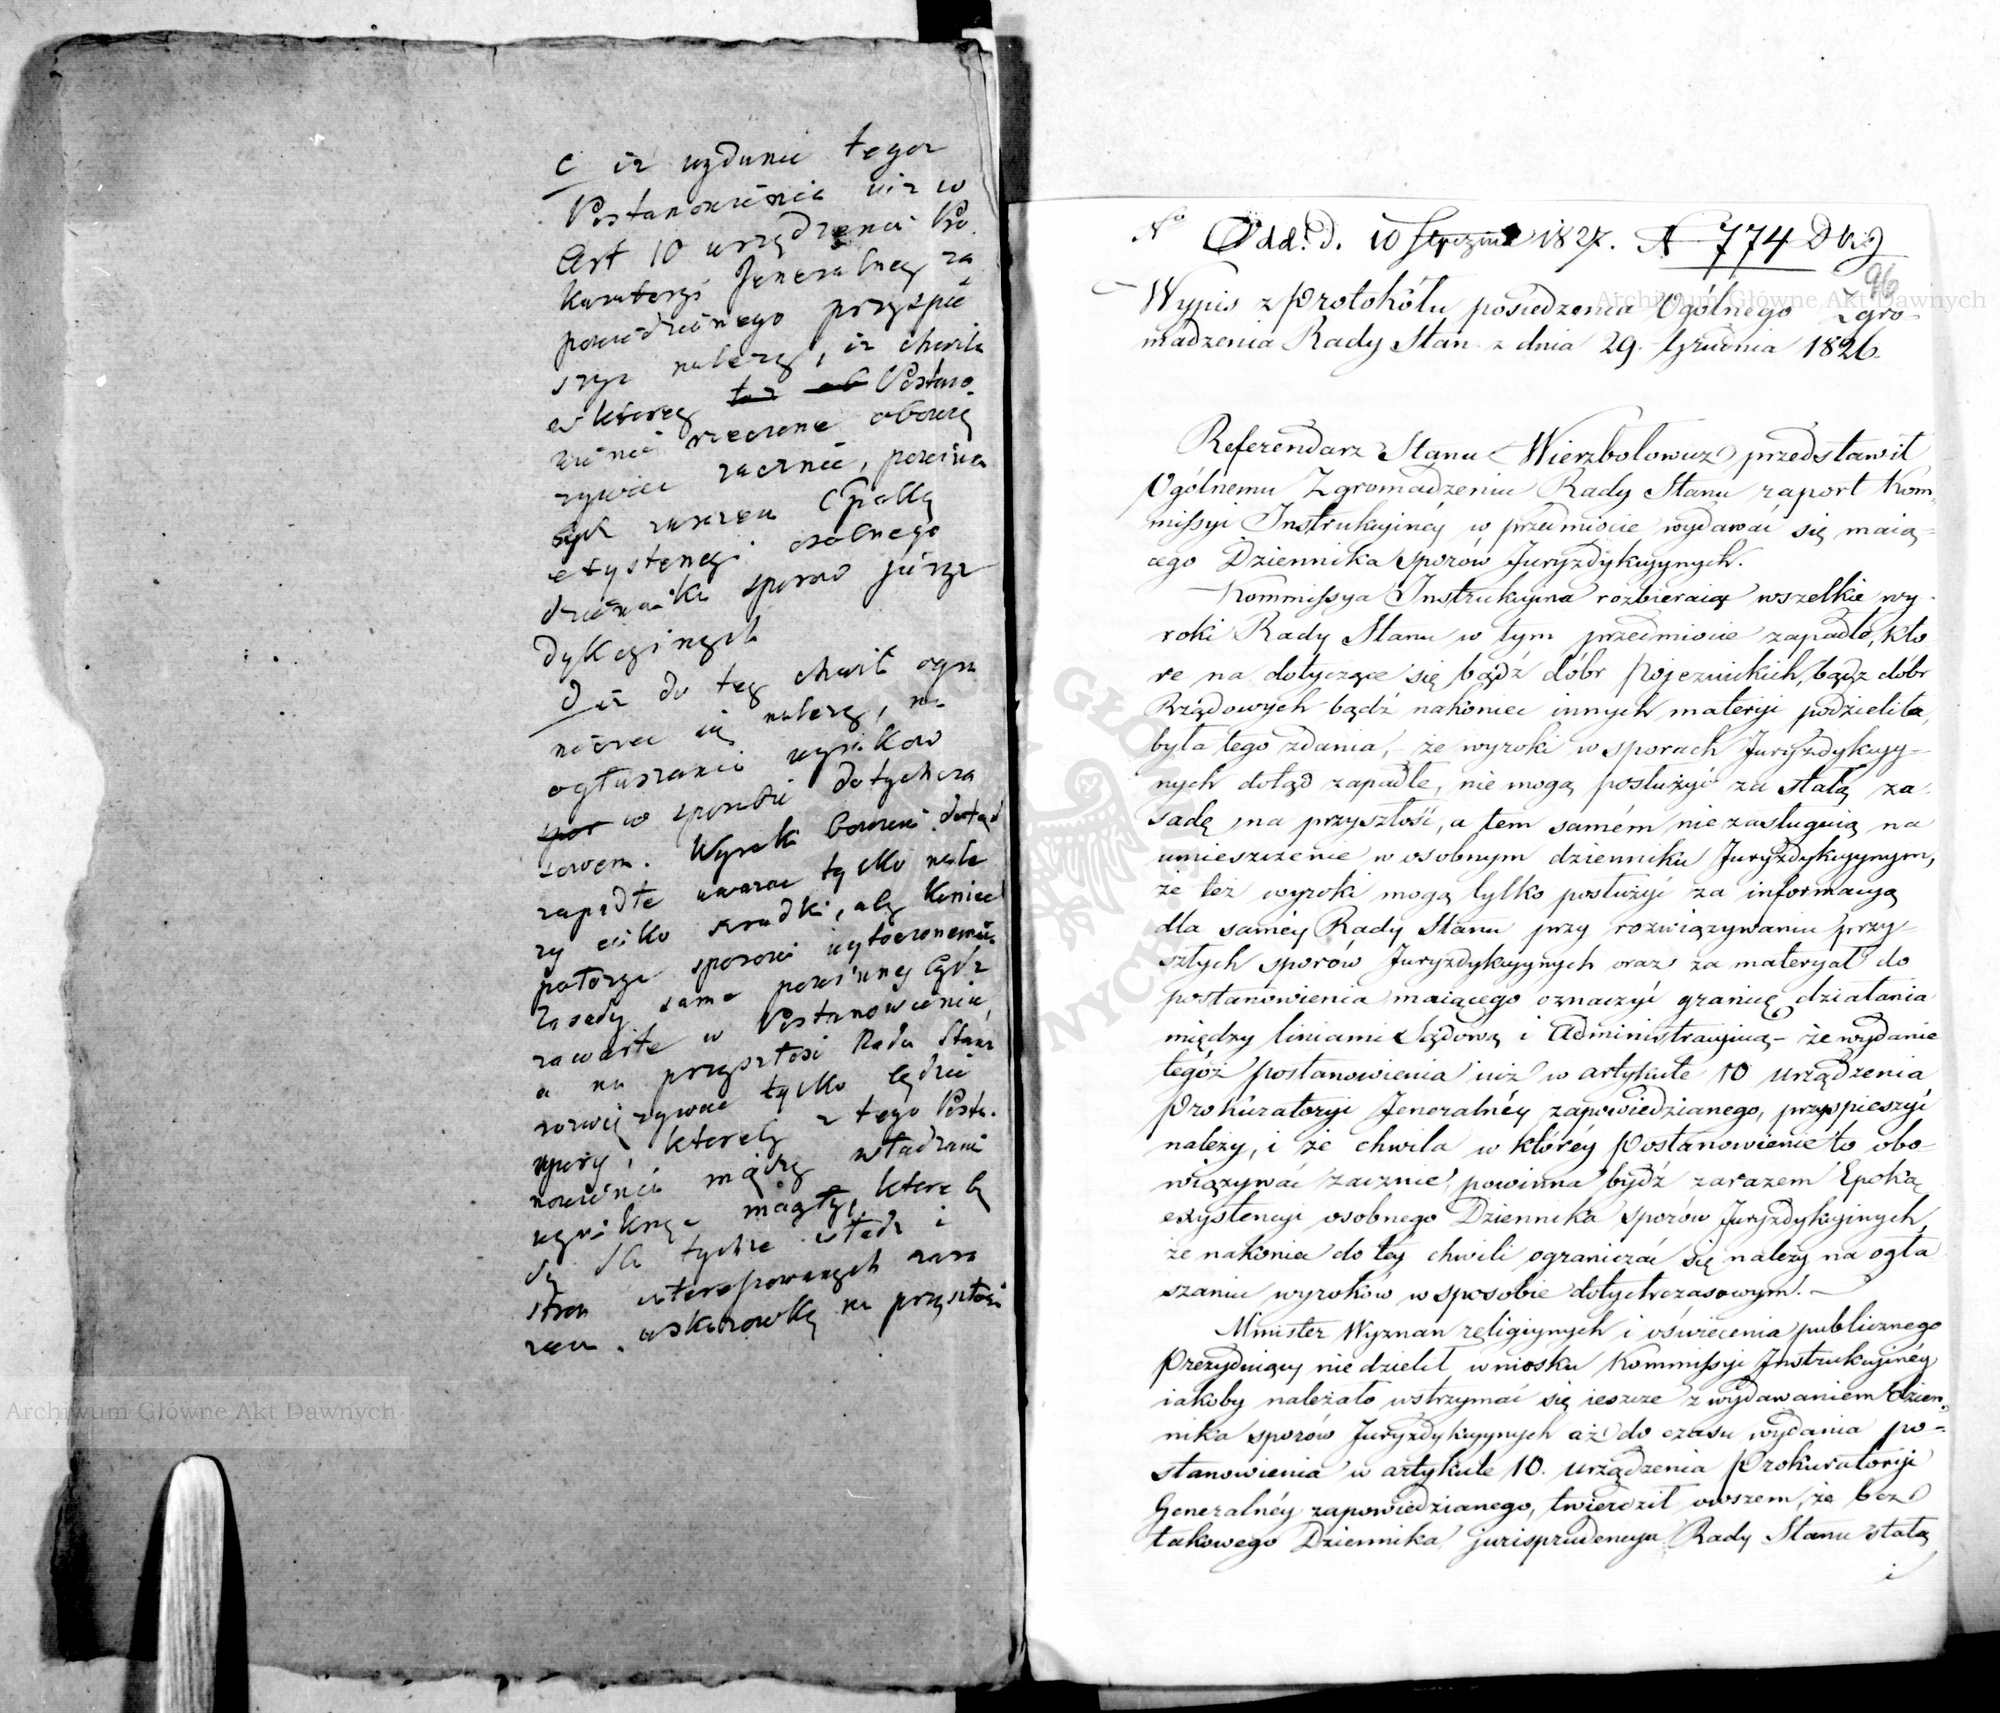 c iż wydanie tegoż
Postanowienia iuż w
Art 10 urządzenia Pro
kuratoryi Jeneralney za
powiedzianego przyspie
szyć należy, iż chwila
w ktorey Postano
wienie rzeczone obowią
zywać zacznie, powinna
bydź zarazem Epoką
exystencyi osobnego
dziennika sporow juryz
dykcyinych
d iż do tey chwili ogra
niczać się należy, na
ogłaszaniu wyrokow
w sposobie dotychcza
sowem. Wyroki bowiem dotąd
zapadłe uważać tylko nale
ży iako srodki, aby koniec
położyć sporowi wytoczonemu
Zasady same powinny bydź
zawarte w Postanowieniu,
a na przyszłosć Rada Stanu
rozwiązywać tylko będzie
spory, ktoreby z tego Posta-
nowienia między władzami
wyniknąć mogły, ktore bę
dą dla tychże władz i
stron interessowanych zara
zem wskazowką na przyszłosć
Archiwum Główne Akt Dawnych
No Odd. D. 10 Stycznia 1827. N 774
96
Archiwum Główne Akt Dawnych
Wypis z Protokółu posiedzenia Ogólnego Zgro-
madzenia Rady Stan. z dnia 29. Grudnia 1826.
Referendarz Stanu Wierzbołowicz przedstawił
Ogólnemu Zgromadzeniu Rady Stanu raport Kom-
missyi Instrukcyinéy w przedmiocie wydawać się maią-
cego Dziennika sporów Juryzdykcyjnych.
Kommissya Instrukcyina rozbieraiąc wszelkie wy-
roki Rady Stanu w tym przedmiocie zapadłe, któ
re na dotyczące się bądź dóbr Pojezuickich, bądź dóbr
Rządowych bądź nakoniec innych materyi podzieliła,
była tego zdania, że wyroki w sporach Juryzdykcyj-
nych dotąd zapadłe, nie mogą posłużyć za stałą za-
sadę na przyszłość, a tem samém nie zasługuią na
umieszczenie w osobnym dzienniku Juryzdykcyjnym,
że też wyroki mogą tylko posłużyć za informacyą
dla saméy Rady Stanu przy rozwiązywaniu przy-
szłych sporów Juryzdykcyjnych oraz za materyał do
postanowienia maiącego oznaczyć granicę działania
między liniami Sądową i Administracyiną - że wydanie
tegóż postanowienia iuż w artykule 10 urządzenia
Prokuratoryi Jeneralnéy zapowiedzianego, przyspieszyć
należy, i że chwila w któréy Postanowienie to obo-
wiązywać zacznie powinna bydź zarazem Epoką
exystencyi osobnego Dziennika sporów Juryzdykcyinych,
że nakoniec do téj chwili ograniczać się należy na ogła
szaniu wyroków w sposobie dotychczasowym. -
Minister Wyznan religiynych i oświecenia publicznego
Prezyduiący nie dzielił wniosku Kommissyi Instrukcyinéy
iakoby należało wstrzymać się ieszcze z wydawaniem Dzien-
nika sporów Juryzdykcyjnych aż do czasu wydania po-
stanowienia w artykule 10. urządzenia Prokuratoryi
Generalnéy zapowiedzianego, twierdził owszem, że bez
takowego Dziennika jurisprudencya Rady Stanu stałą
i